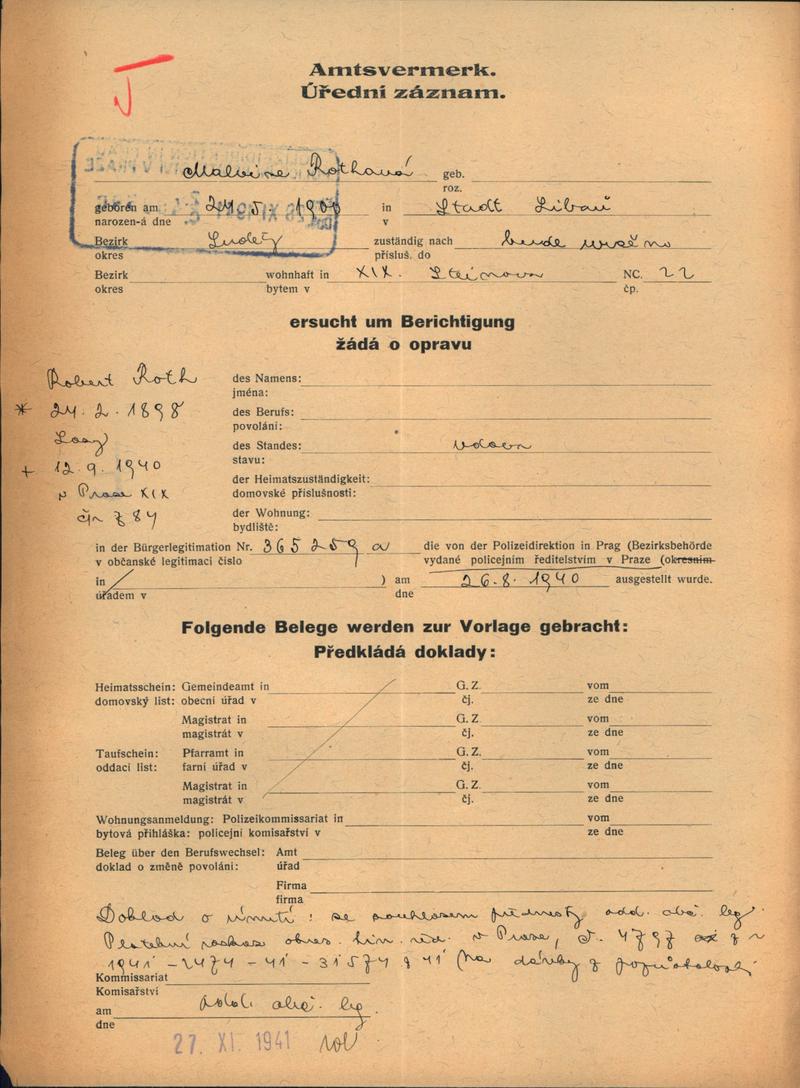 J
Amtsvermerk.
Úřední záznam.
Malvine Rothová geb.
roz.
geboren am 24. 5. 1900 in Stadt Libau
narozen-á dne v
Bezirk zuständig nach bude
okres přísluš. do
Bezirk wohnhaft in XIX. NC. 22
okres bytem v čp.
ersucht um Berichtigung
žádá o opravu
Robert Roth
* 24. 2. 1898
+ 12. 9. 1940
v Praze XIX
čp 784
des Namens:
jména:
des Berufs:
povolání:
des Standes: vdova
stavu:
der Heimatszuständigkeit:
domovské příslušnosti:
der Wohnung:
bydliště:
in der Bürgerlegitimation Nr. 365259 die von der Polizeidirektion in Prag (Bezirksbehörde
v občanské legitimaci číslo vydané policejním ředitelstvím v Praze (okresním
in ) am 26. 8. 1940 ausgestellt wurde.
úřadem v dne
Folgende Belege werden zur Vorlage gebracht:
Předkládá doklady:
Heimatsschein: Gemeindeamt in G. Z. vom
domovský list: obecní úřad v čj. ze dne
Magistrat in G. Z. vom
magistrát v čj. ze dne
Taufschein: Pfarramt in G. Z. vom
oddací list: farní úřad v čj. ze dne
Magistrat in G. Z. vom
magistrát v čj. ze dne
Wohnungsanmeldung: Polizeikommissariat in vom
bytová přihláška: policejní komisařství v ze dne
Beleg über den Berufswechsel: Amt
doklad o změně povolání: úřad
Firma
firma
Doklad o úmrtí: se souhlasem přednosty odd. obč. leg.
Platební v Praze, 4797
1941 - 2474 - 41 - 31574 41 (na dávky z pozůstalosti
Kommissariat
Komisařství
am obč. leg.
dne
27. XI. 1941